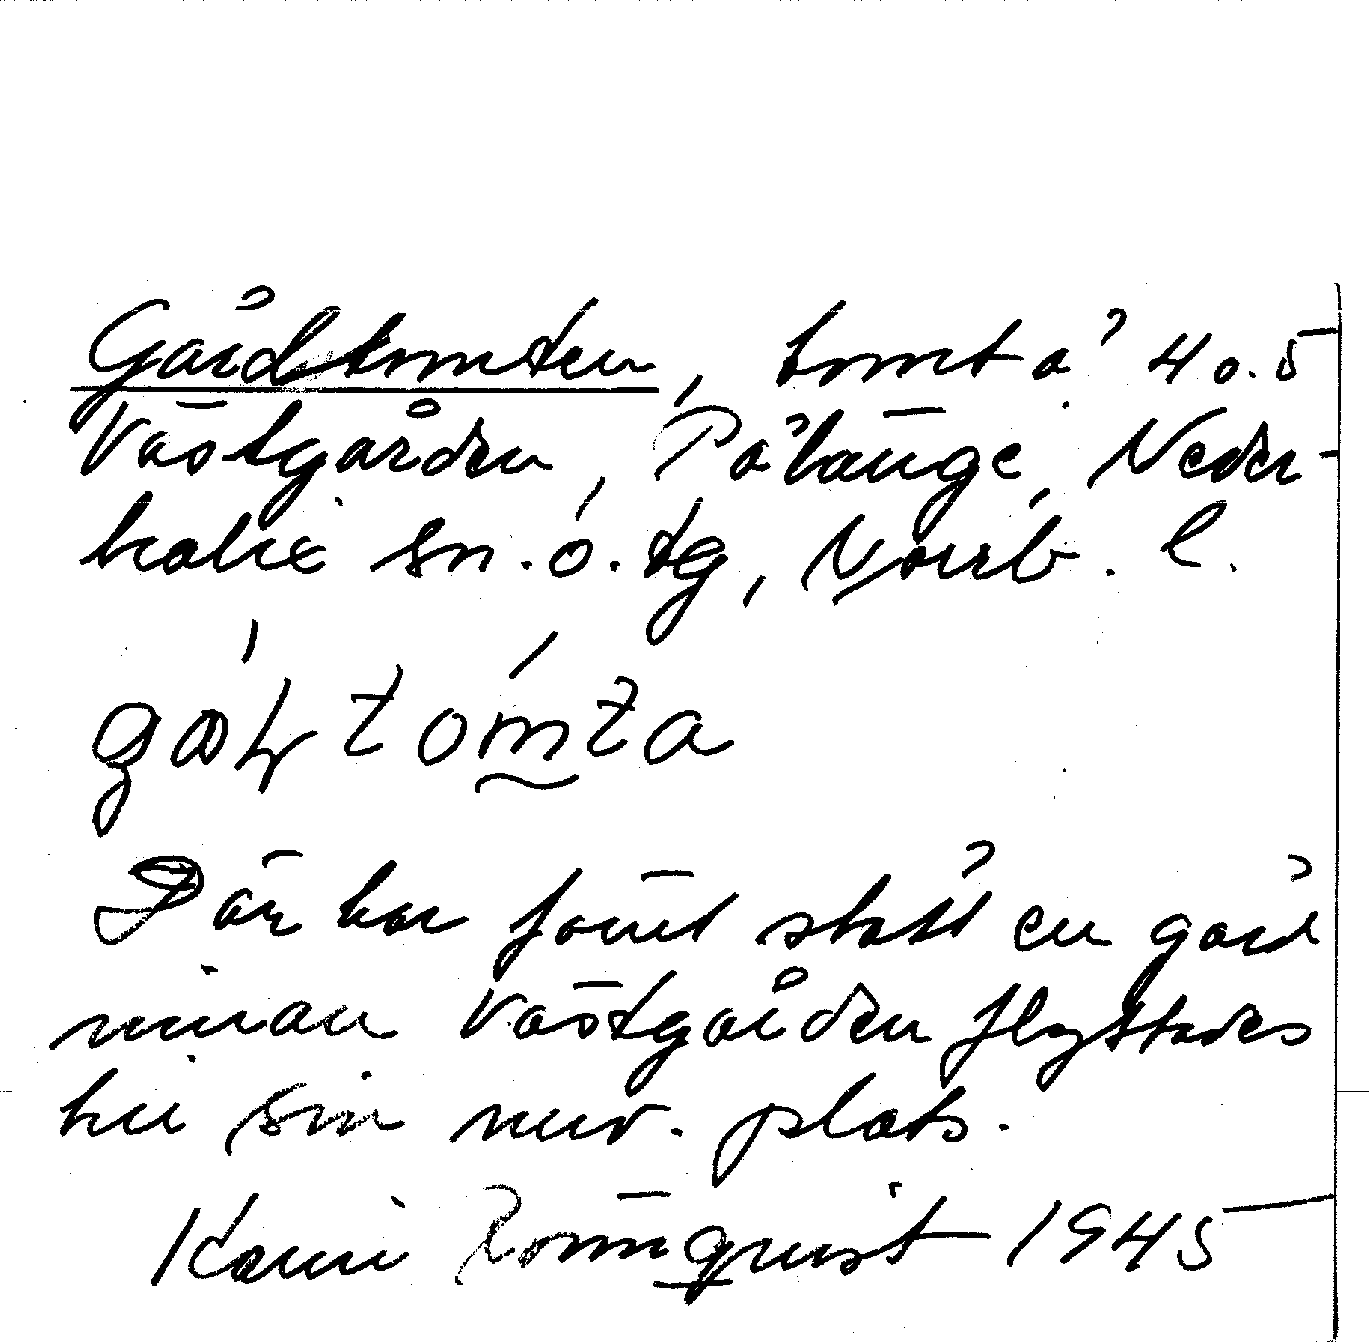 Gårdtomten, tomt å 4 o. 5
Västgården, Pålänge, Neder-
kalix sn. o. tg, Norrb. l.
gɷ́ʈ tómta
Där har förut stått en gård
innan Västgården flyttades
till sin nuv. plats.
Karin Rönnquist 1945